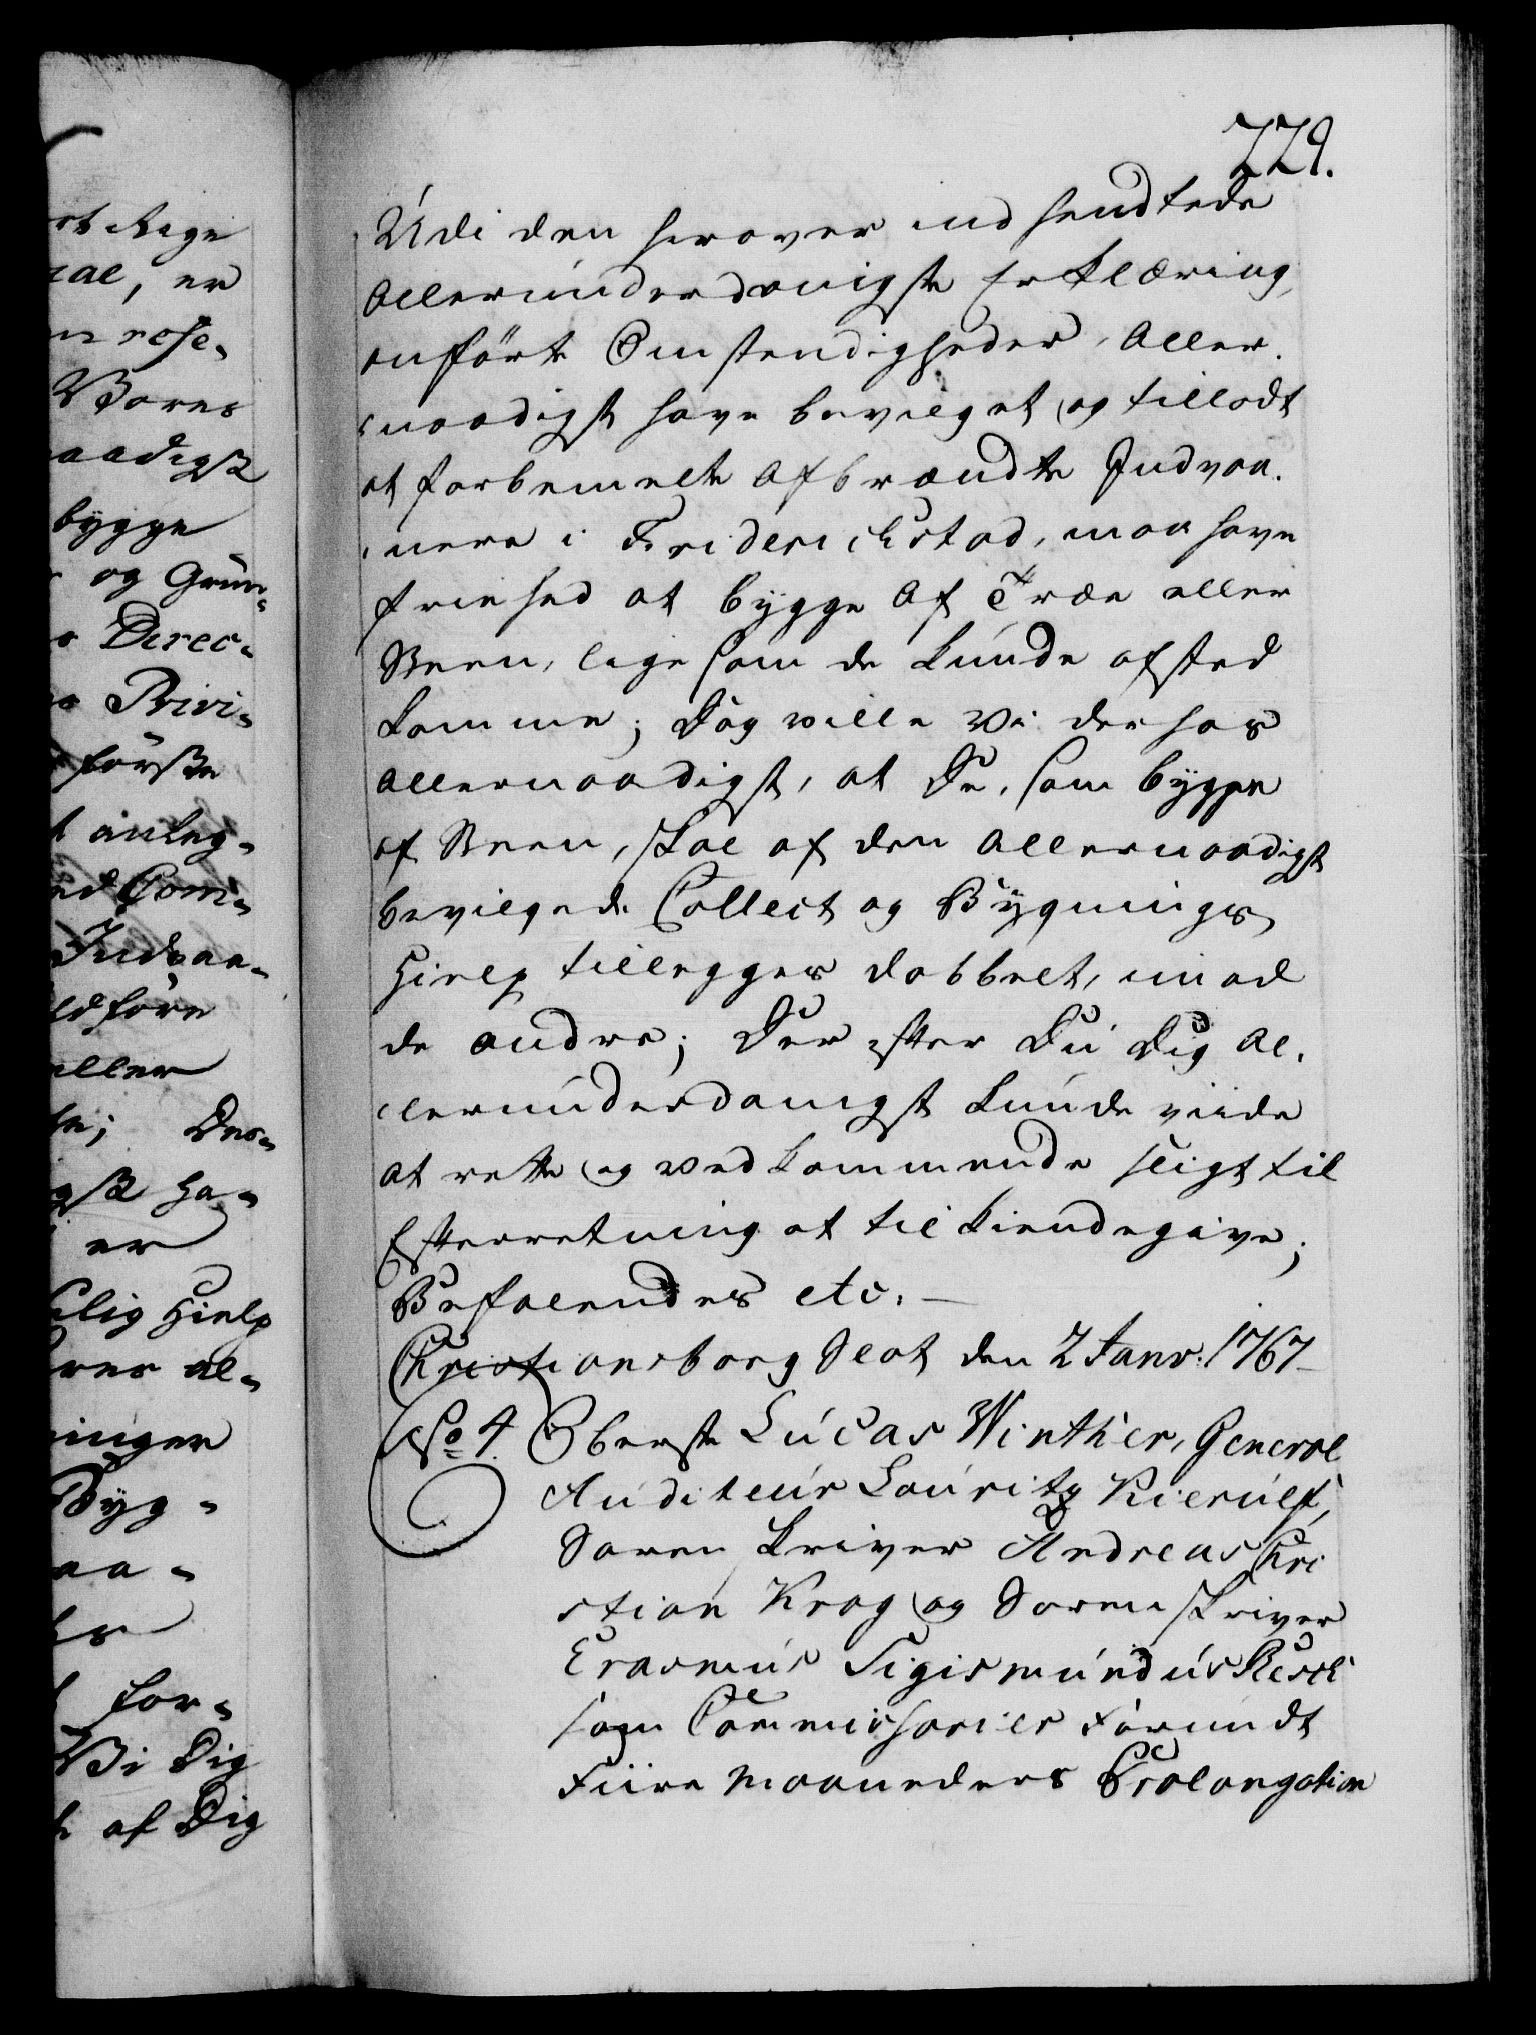 229.
Udi den herover indsendtede
Allerunderdanigste Erklæring,
anførte Omstendigheder, Aller-
naadigst have bevilget og tilladt
at forbemelte Afbrændte Indvaa-
nere i Friderichstad, maa have
friehed at bygge Af Træe eller
Steen, lige som de kunde afsted
komme; Dog wille Vi derhos
Allernaadigst, at De, som bygge
af Steen, skal af den Allernaadigst
bevilgede Collect og Bygnings
Hielp tillegges dobbelt, imod
de andre; Der efter Du Dig Al-
lerunderdanigst kunde viide
at rette og vedkommende sligt til
Efterretning at tilkiendegive;
Befalendes etc. —
Christiansborg Slot den 2 Janv: 1767
No 4. Oberste Lucas Winther, General
Auditeur Lauritz Kierulf,
Soren Skriver Andreas Chri
stian Krog og Soren Skriver
Erasmus Sigismundus Resch
som Commissarier Forundt
Fiire Maaneders Prolongation
rt Rige
al, er
n rese-
Vores
aadigst
bygge
og Grun-
Direc-
Privi-
første
t anleg-
ed Com-
Indvaa-
ldføre
eller
te; Des-
gst ha-
er
lig Hielp
res al-
inger
Byg-
aa-
for-
Vi Dig
af Dig